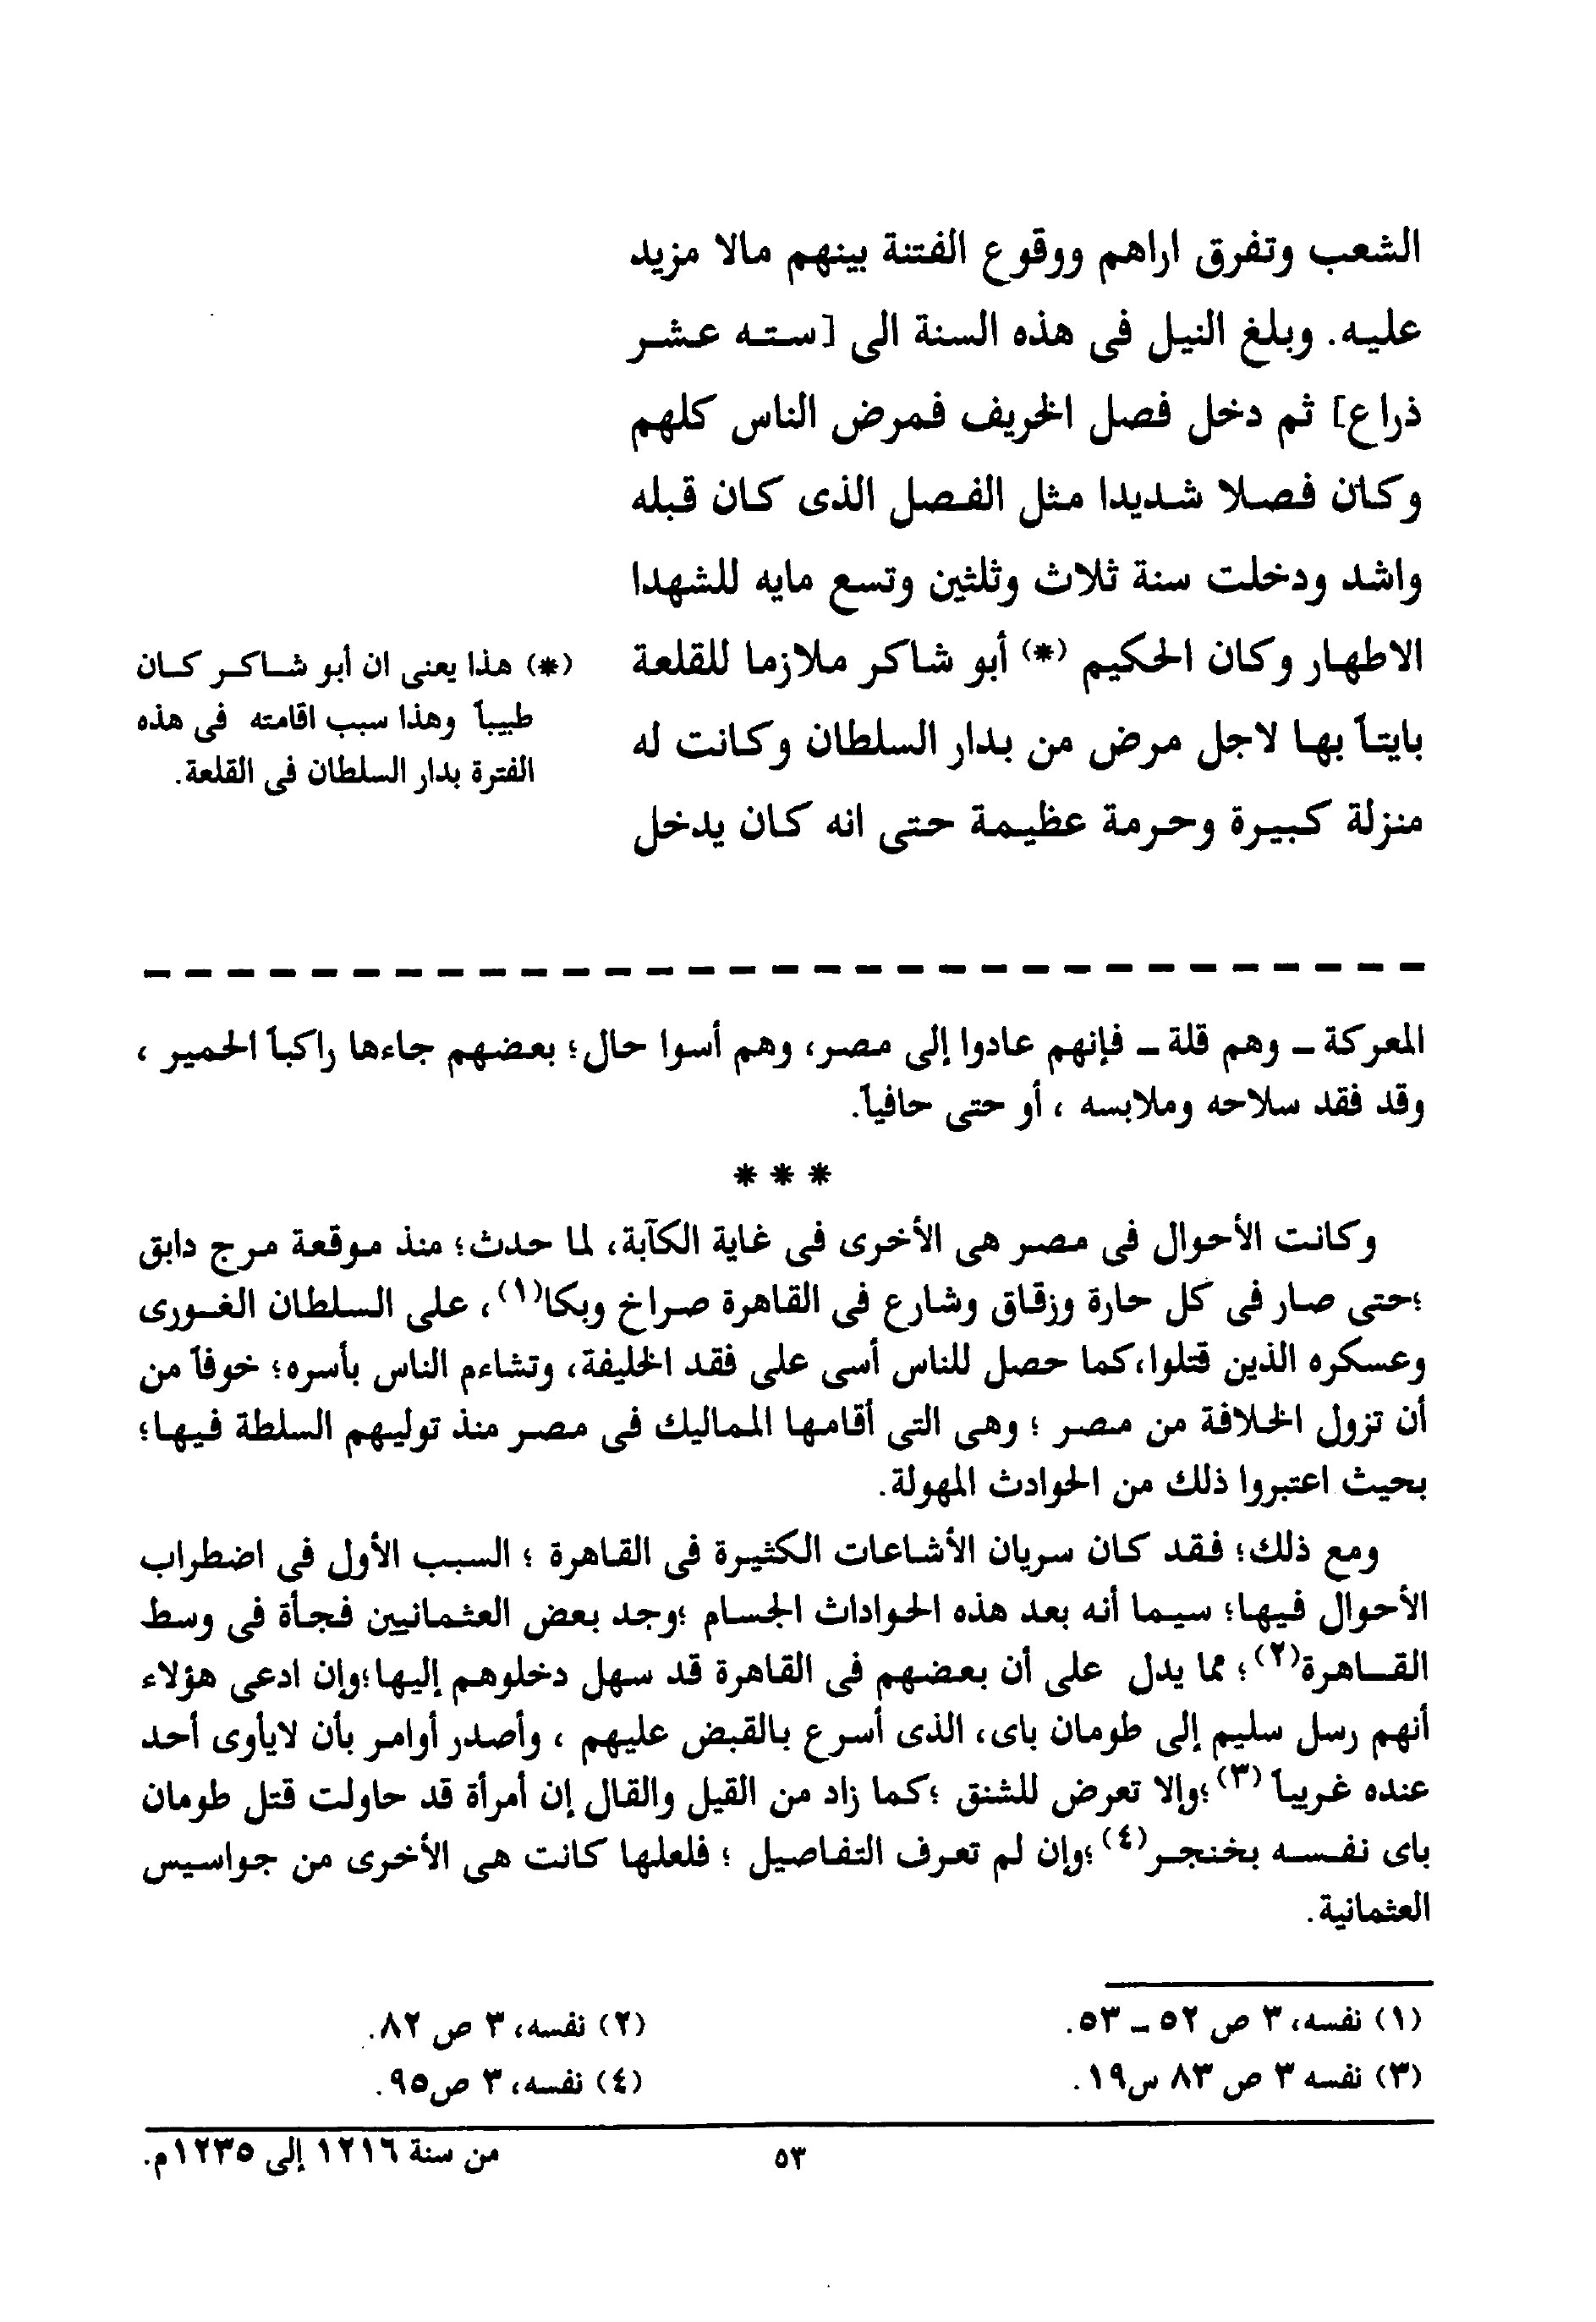 الشعب وتفرق اراهم ووقوع الفتنة بينهم مالا مزيد
عليه. وبلغ النيل فى هذه السنة الى [سته عشر
ذراع] ثم دخل فصل الخريف فمرض الناس كلهم
وكان فصلا شديدا مثل الفصل الذى كان قبله
واشد ودخلت سنة ثلاث وثلثين وتسع مايه للشهدا
الاطهار وكان الحكيم (*) أبو شاكر ملازما للقلعة
بايتاً بها لاجل مرض من بدار السلطان وكانت له
منزلة كبيرة وحرمة عظيمة حتى انه كان يدخل
(*) هذا يعنى ان أبو شاكر كان
طبيباً وهذا سبب اقامته فى هذه
الفترة بدار السلطان فى القلعة.
المعركة ـ وهم قلة ـ فإنهم عادوا إلى مصر، وهم أسوا حال؛ بعضهم جاءها راكباً الحمير ،
وقد فقد سلاحه وملابسه ، أو حتى حافياً.
* * *
وكانت الأحوال فى مصر هى الأخرى فى غاية الكآبة، لما حدث؛ منذ موقعة مرج دابق
؛حتى صار فى كل حارة وزقاق وشارع فى القاهرة صراخ وبكا(١)، على السلطان الغورى
وعسكره الذين قتلوا،كما حصل للناس أسى على فقد الخليفة، وتشاءم الناس بأسره؛ خوفاً من
أن تزول الخلافة من مصر ؛ وهى التى أقامها المماليك فى مصر منذ توليهم السلطة فيها؛
بحيث اعتبروا ذلك من الحوادث المهولة.
ومع ذلك؛ فقد كان سريان الأشاعات الكثيرة فى القاهرة ؛ السبب الأول فى اضطراب
الأحوال فيها؛ سيما أنه بعد هذه الحواداث الجسام ؛وجد بعض العثمانيين فجأة فى وسط
القاهرة(٢)؛ مما يدل على أن بعضهم فى القاهرة قد سهل دخلوهم إليها؛وإن ادعى هؤلاء
أنهم رسل سليم إلى طومان باى، الذى أسرع بالقبض عليهم ، وأصدر أوامر بأن لايأوى أحد
عنده غريباً (٣)؛وإلا تعرض للشنق ؛كما زاد من القيل والقال إن أمرأة قد حاولت قتل طومان
باى نفسه بخنجر(٤)؛وإن لم تعرف التفاصيل ؛ فلعلها كانت هى الأخرى من جواسيس
العثمانية.
(١) نفسه، ٣ ص ٥٢ ـ ٥٣.
(٢) نفسه، ٣ ص ٨٢.
(٣) نفسه ٣ ص ٨٣ س١٩.
(٤) نفسه، ٣ ص٩٥.
٥٣
من سنة ١٢١٦ إلى ١٢٣٥م.